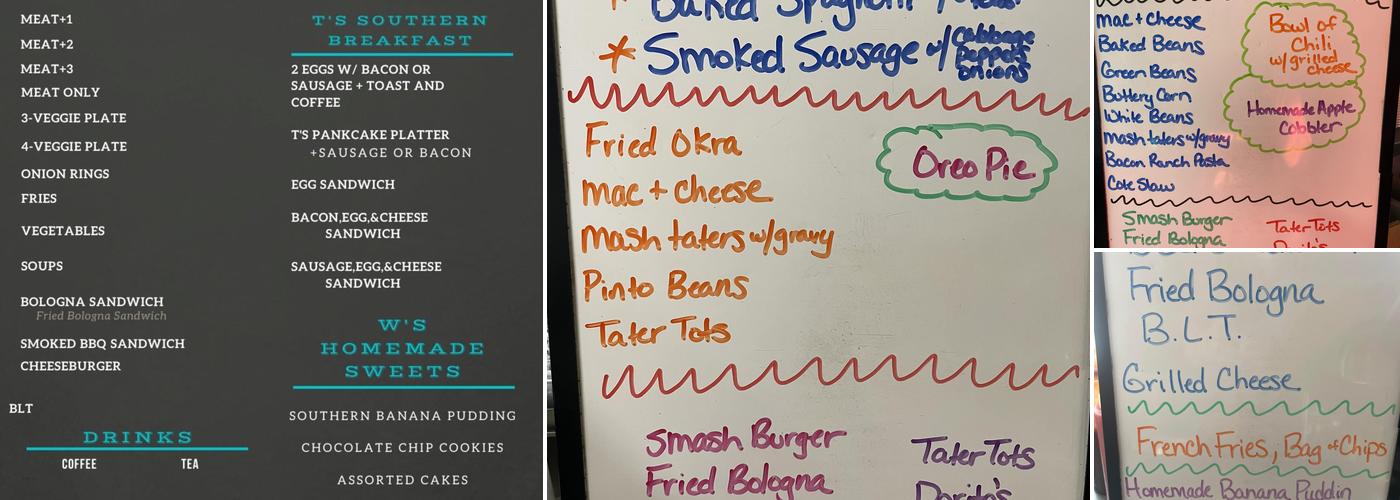 MEAT+1
MEAT+2
MEAT+3
MEAT ONLY
3-VEGGIE PLATE
4-VEGGIE PLATE
ONION RINGS
FRIES
VEGETABLES
SOUPS
BOLOGNA SANDWICH
Fried Bologna Sandwich
SMOKED BBQ SANDWICH
CHEESEBURGER
BLT
DRINKS
COFFEE TEA
T'S SOUTHERN
BREAKFAST
2 EGGS W/ BACON OR
SAUSAGE + TOAST AND
COFFEE
T'S PANKCAKE PLATTER
+SAUSAGE OR BACON
EGG SANDWICH
BACON,EGG,&CHEESE
SANDWICH
SAUSAGE,EGG,&CHEESE
SANDWICH
W'S
HOMEMADE
SWEETS
SOUTHERN BANANA PUDDING
CHOCOLATE CHIP COOKIES
ASSORTED CAKES
Baked Spaghetti w/
* Smoked Sausage w/ cabbage
peppers
onions
Fried Okra
Mac + Cheese
Mash taters w/gravy
Pinto Beans
Tater Tots
Oreo Pie
Smash Burger
Fried Bologna
Tater Tots
Dorito's
Mac + Cheese
Baked Beans
Green Beans
Buttery Corn
White Beans
Mash taters w/gravy
Bacon Ranch Pasta
Cole Slaw
Bowl of
Chili
w/grilled
cheese
Homemade Apple
Cobbler
Smash Burger
Fried Bologna
Tater Tots
Dorito's
Fried Bologna
B.L.T.
Grilled Cheese
French Fries, Bag of Chips
Homemade Banana Puddin